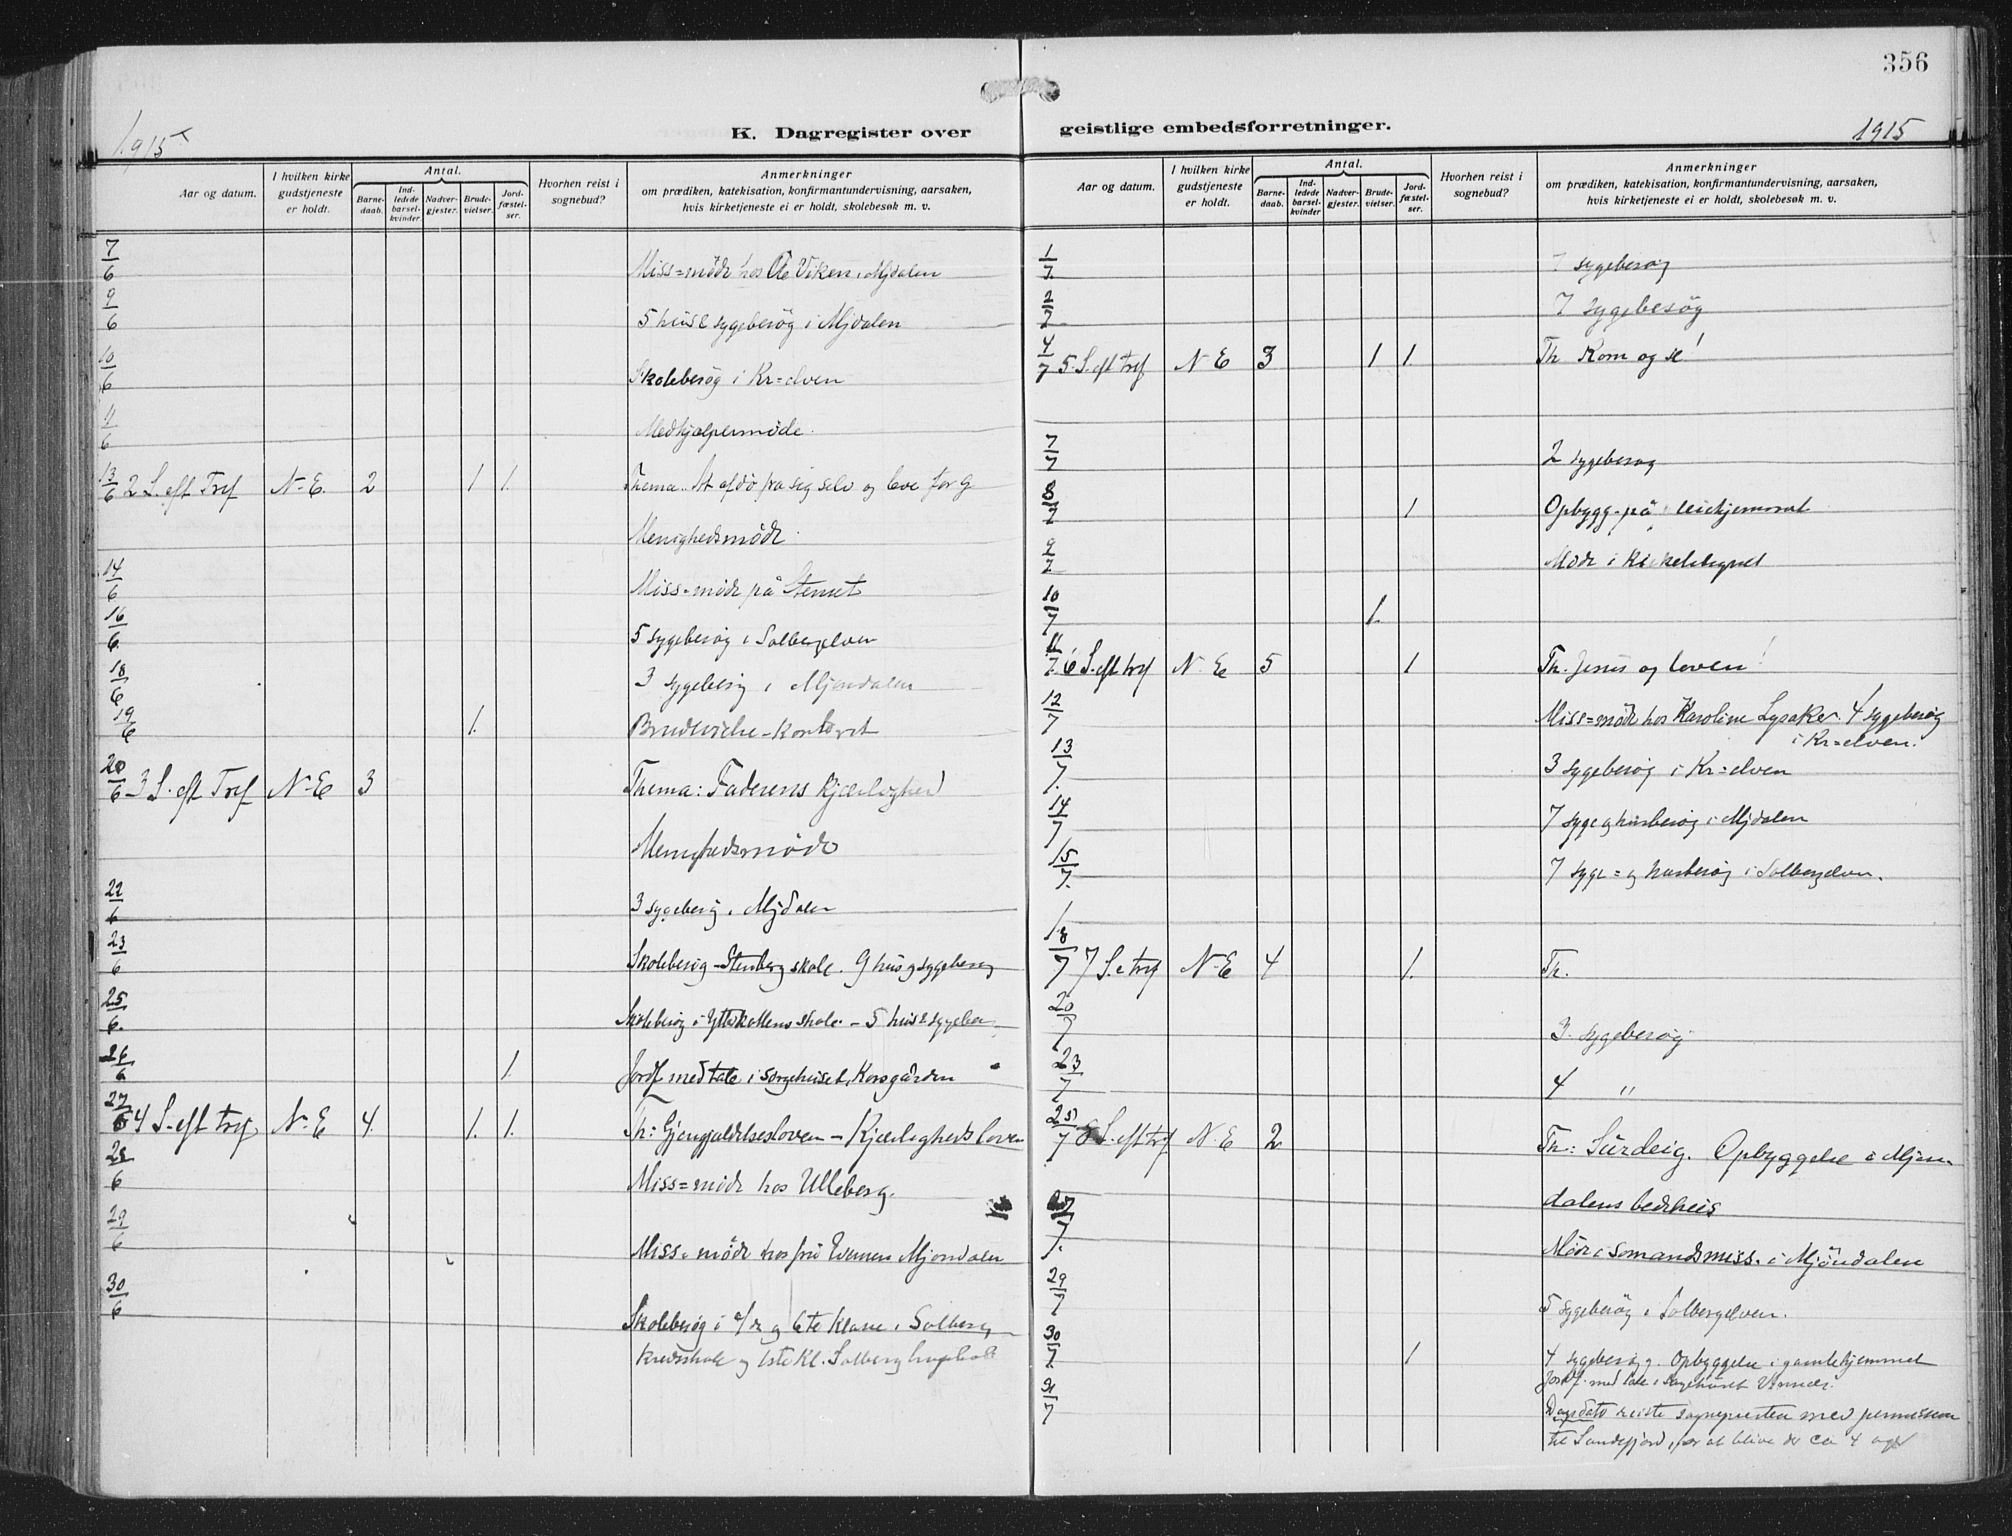 356
1915
K. Dagregister over
Aar og datum. I hvilken kirke gudstjeneste er holdt. Antal. Barnedaab. Indledede barselkvinder Nadvergjester. Brudevielser. Jordfæstelser. Hvorhen reist i sognebud? Anmerkninger om prædiken, katekisation, konfirmantundervisning, aarsaken, hvis kirketjeneste ei er holdt, skolebesøk m. v.
7/6 Miss=møde hos Viken i Mjdalen
9/6 5 huse sygebesøg i Mjdalen
10/6 Skolebesøg i Kr=elven
11/6 Medhjælpermøde.
13/6 2 S. eft Tref N-E. 2 1 1. Thema. At afdø fra sig selv og leve for G
Menighedsmøde.
14/6 Miss-møde på Stenset
16/6 5 sygebesøg i Solbergelven
18/6 3 sygebesøg i Mjøndalen
19/6 1. Brudevielse - Kontoret
20/6 3 S. eft Tref N-E 3 Thema: Faderens kjærlighed
Menighedsmøde
22/6 3 sygebesøg i Mjdalen
23/6 Skolebesøg - Stenberg skole. 9 hus og sygebesøg
25/6 Skolebesøg i Ytterkollens skole - 5 hus & sygebes
26/6 1. Jordf med tale i sørgehuset, Korsgården
27/6 4 S. eft tref N-E 4. 1. 1. Th: Gjengjældelsesloven - Kjærlighedsloven
28/6 Miss=møde hos Ulleberg.
29/6 Miss. møde hos fru Mjøndalen
30/6 Skolebesøg i og 6te klasse i Solberg
kredsskole og 1ste Kl. Solberg
geistlige embedsforretninger.
1915
Aar og datum. I hvilken kirke gudstjeneste er holdt. Antal. Barnedaab. Indledede barselkvinder Nadvergjester. Brudevielser. Jordfæstelser. Hvorhen reist i sognebud? Anmerkninger om prædiken, katekisation, konfirmantundervisning, aarsaken, hvis kirketjeneste ei er holdt, skolebesøk m. v.
1/7 7 sygebesøg
2/7 7 sygebesøg
4/7 5. S. eft tref N-E 3 1 1. Th Kom og se!
7/7 2 sygebesøg
8/7 1. Opbygg. på
9/7 Møde i
10/7 1.
11/7 6 S. eft tref N-E 5 1 Th. Jesus og loven!
12/7 Miss=møde hos Karoline Lysaker. 4 sygebesøg
i Kr=elven.
13/7. 3 sygebesøg i Kr=elven
14/7 7 syge og husbesøg i Mjdalen
15/7. 7 syge= og husbesøg i Solbergelven.
18/7 7 S. e tref N-E 4 1. Th.
20/7 3 sygebesøg
23/7 4 "
25/7 8 S. eft tref N-E 2 Th: Surdeig. Opbyggelse i Mjøn
dalens bedehus
27/7. Møde i Sømandsmiss. i Mjöndalen
29/7 5 sygebesøg i Solbergelven.
30/7. 1 4 sygebesøg. Opbyggelse i gamlehjemmet
Jordf. med tale i sørgehuset
31/7 Dagsdato reiste sognepresten med permission
til Sandefjord, for at blive der ca 4 uger